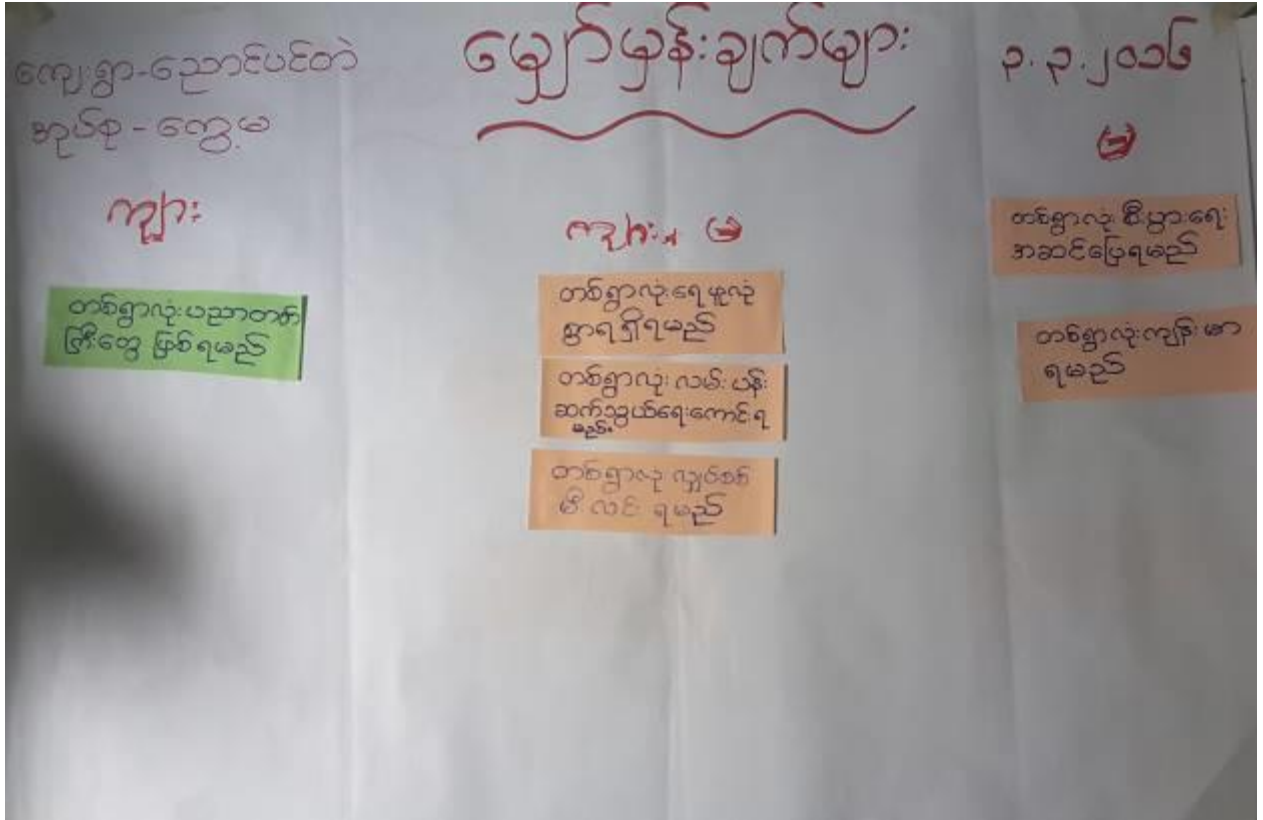 ကျေးရွာ-ညောင်ပင်တဲ
အုပ်စု-တွေ့မ
မျှော်မှန်းချက်များ
၃.၃.၂၀၁၆
ကျား
တစ်ရွာလုံးပညာတတ်
ကြီးတွေ ဖြစ်ရမည်
ကျား၊ မ
တစ်ရွာလုံးရေဖူလုံ
စွာရရှိရမည်
တစ်ရွာလုံး လမ်းပန်း
ဆက်သွယ်ရေးကောင်းရ
မည်။
တစ်ရွာလုံး လျှပ်စစ်
မီးလင်း ရမည်
မ
တစ်ရွာလုံး စီးပွားရေး
အဆင်ပြေရမည်
တစ်ရွာလုံးကျန်းမာ
ရမည်